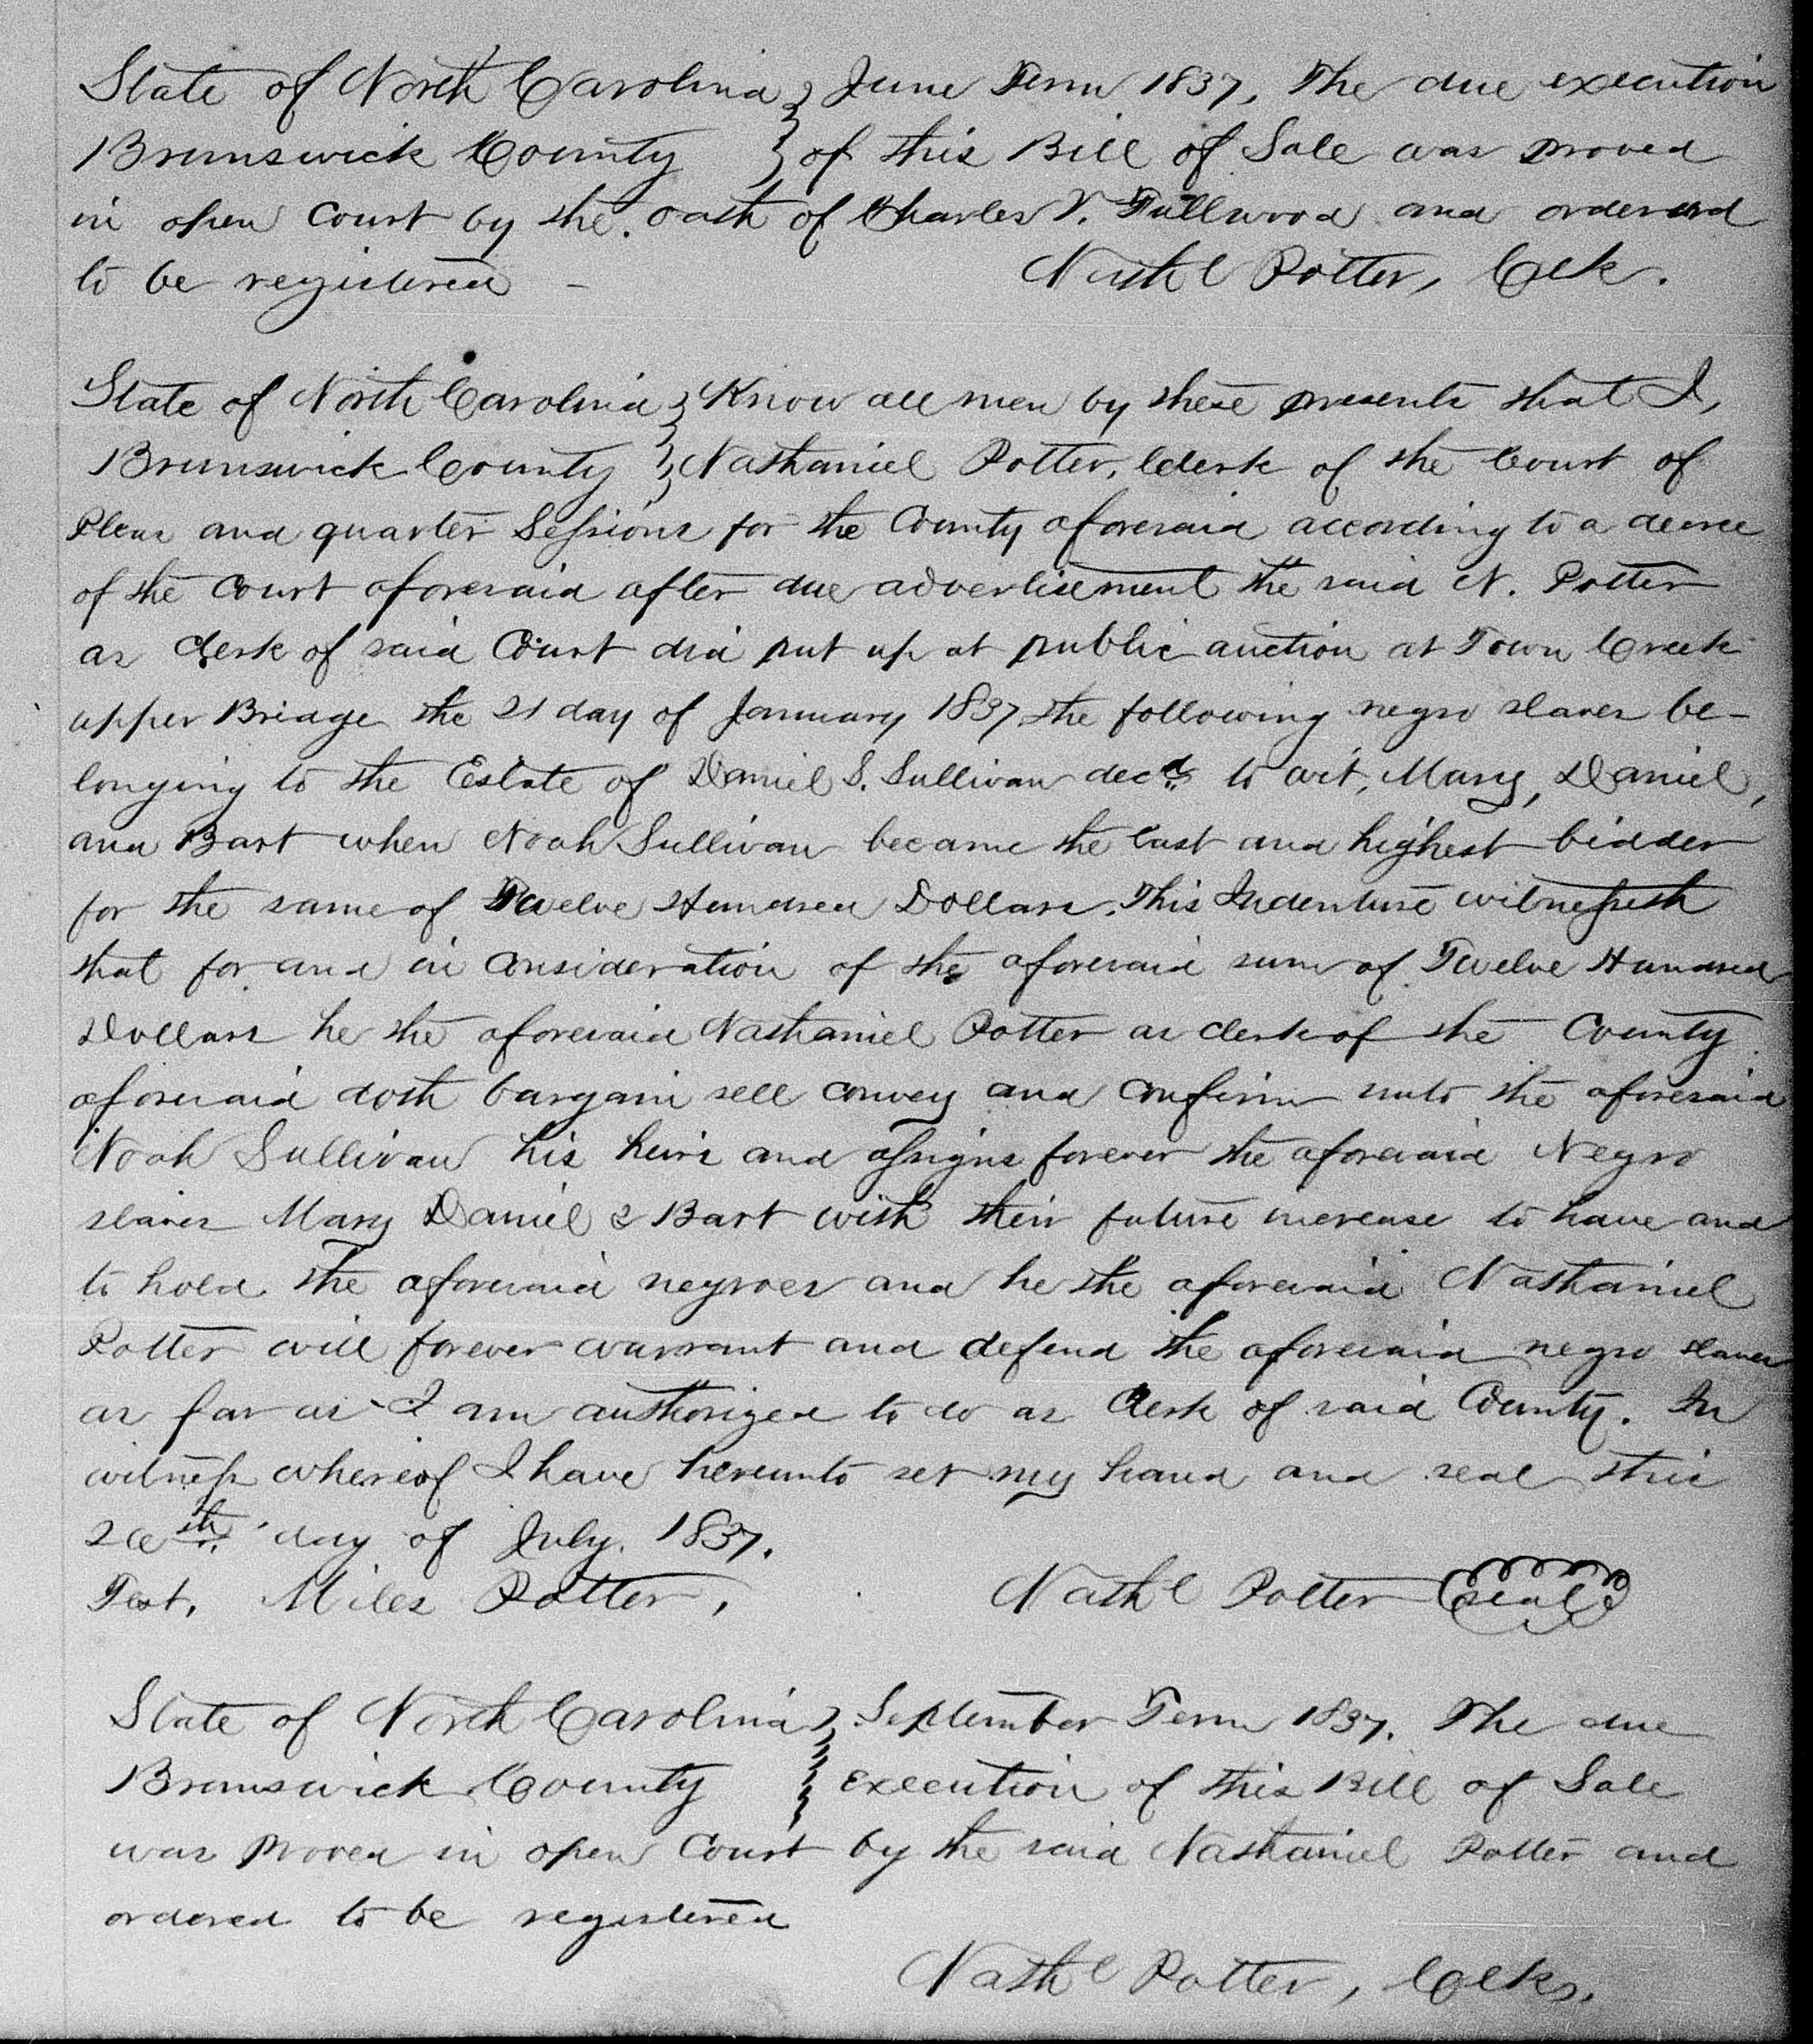 State of North Carolina } June Term 1837, The due execution
Brunswick County } of this Bill of Sale was proved
in open Court by the oath of Charles V. Fullwood and ordered
to be registered - Nathl Potter, Clk.
State of North Carolina } Know all men by these presents that I,
Brunswick County } Nathaniel Potter, Clerk of the Court of
Pleas and quarter Sessions for the County aforesaid according to a decree
of the Court aforesaid after due advertisement the said N. Potter
as Clerk of said Court did put up at public auction at Town Creek
upper Bridge the 21 day of January 1837, the following negro slaves be-
longing to the Estate of Daniel S. Sullivan decd. to wit, Mary, Daniel,
and Bart when Noah Sullivan became the last and highest bidder
for the same of Twelve Hundred Dollars. This Indenture witnesseth
that for and in consideration of the aforesaid sum of Twelve Hundred
Dollars he the aforesaid Nathaniel Potter as clerk of the County
aforesaid doth bargain sell convey and confirm unto the aforesaid
Noah Sullivan his heirs and assigns forever the aforesaid Negro
slaves Mary Daniel & Bart with their future increase to have and
to hold the aforesaid negroes and he the aforesaid Nathaniel
Potter will forever warrant and defend the aforesaid negro slaves
as far as I am authorized to do as Clerk of said County. In
witness whereof I have hereunto set my hand and seal this
day of July. 1837.
Test, Miles Potter, Nathl Potter (seal)
State of North Carolina } September Term 1837. The due
Brunswick County } execution of this Bill of Sale
was proved in open Court by the said Nathaniel Potter and
ordered to be registered
Nathl Potter, Clk.